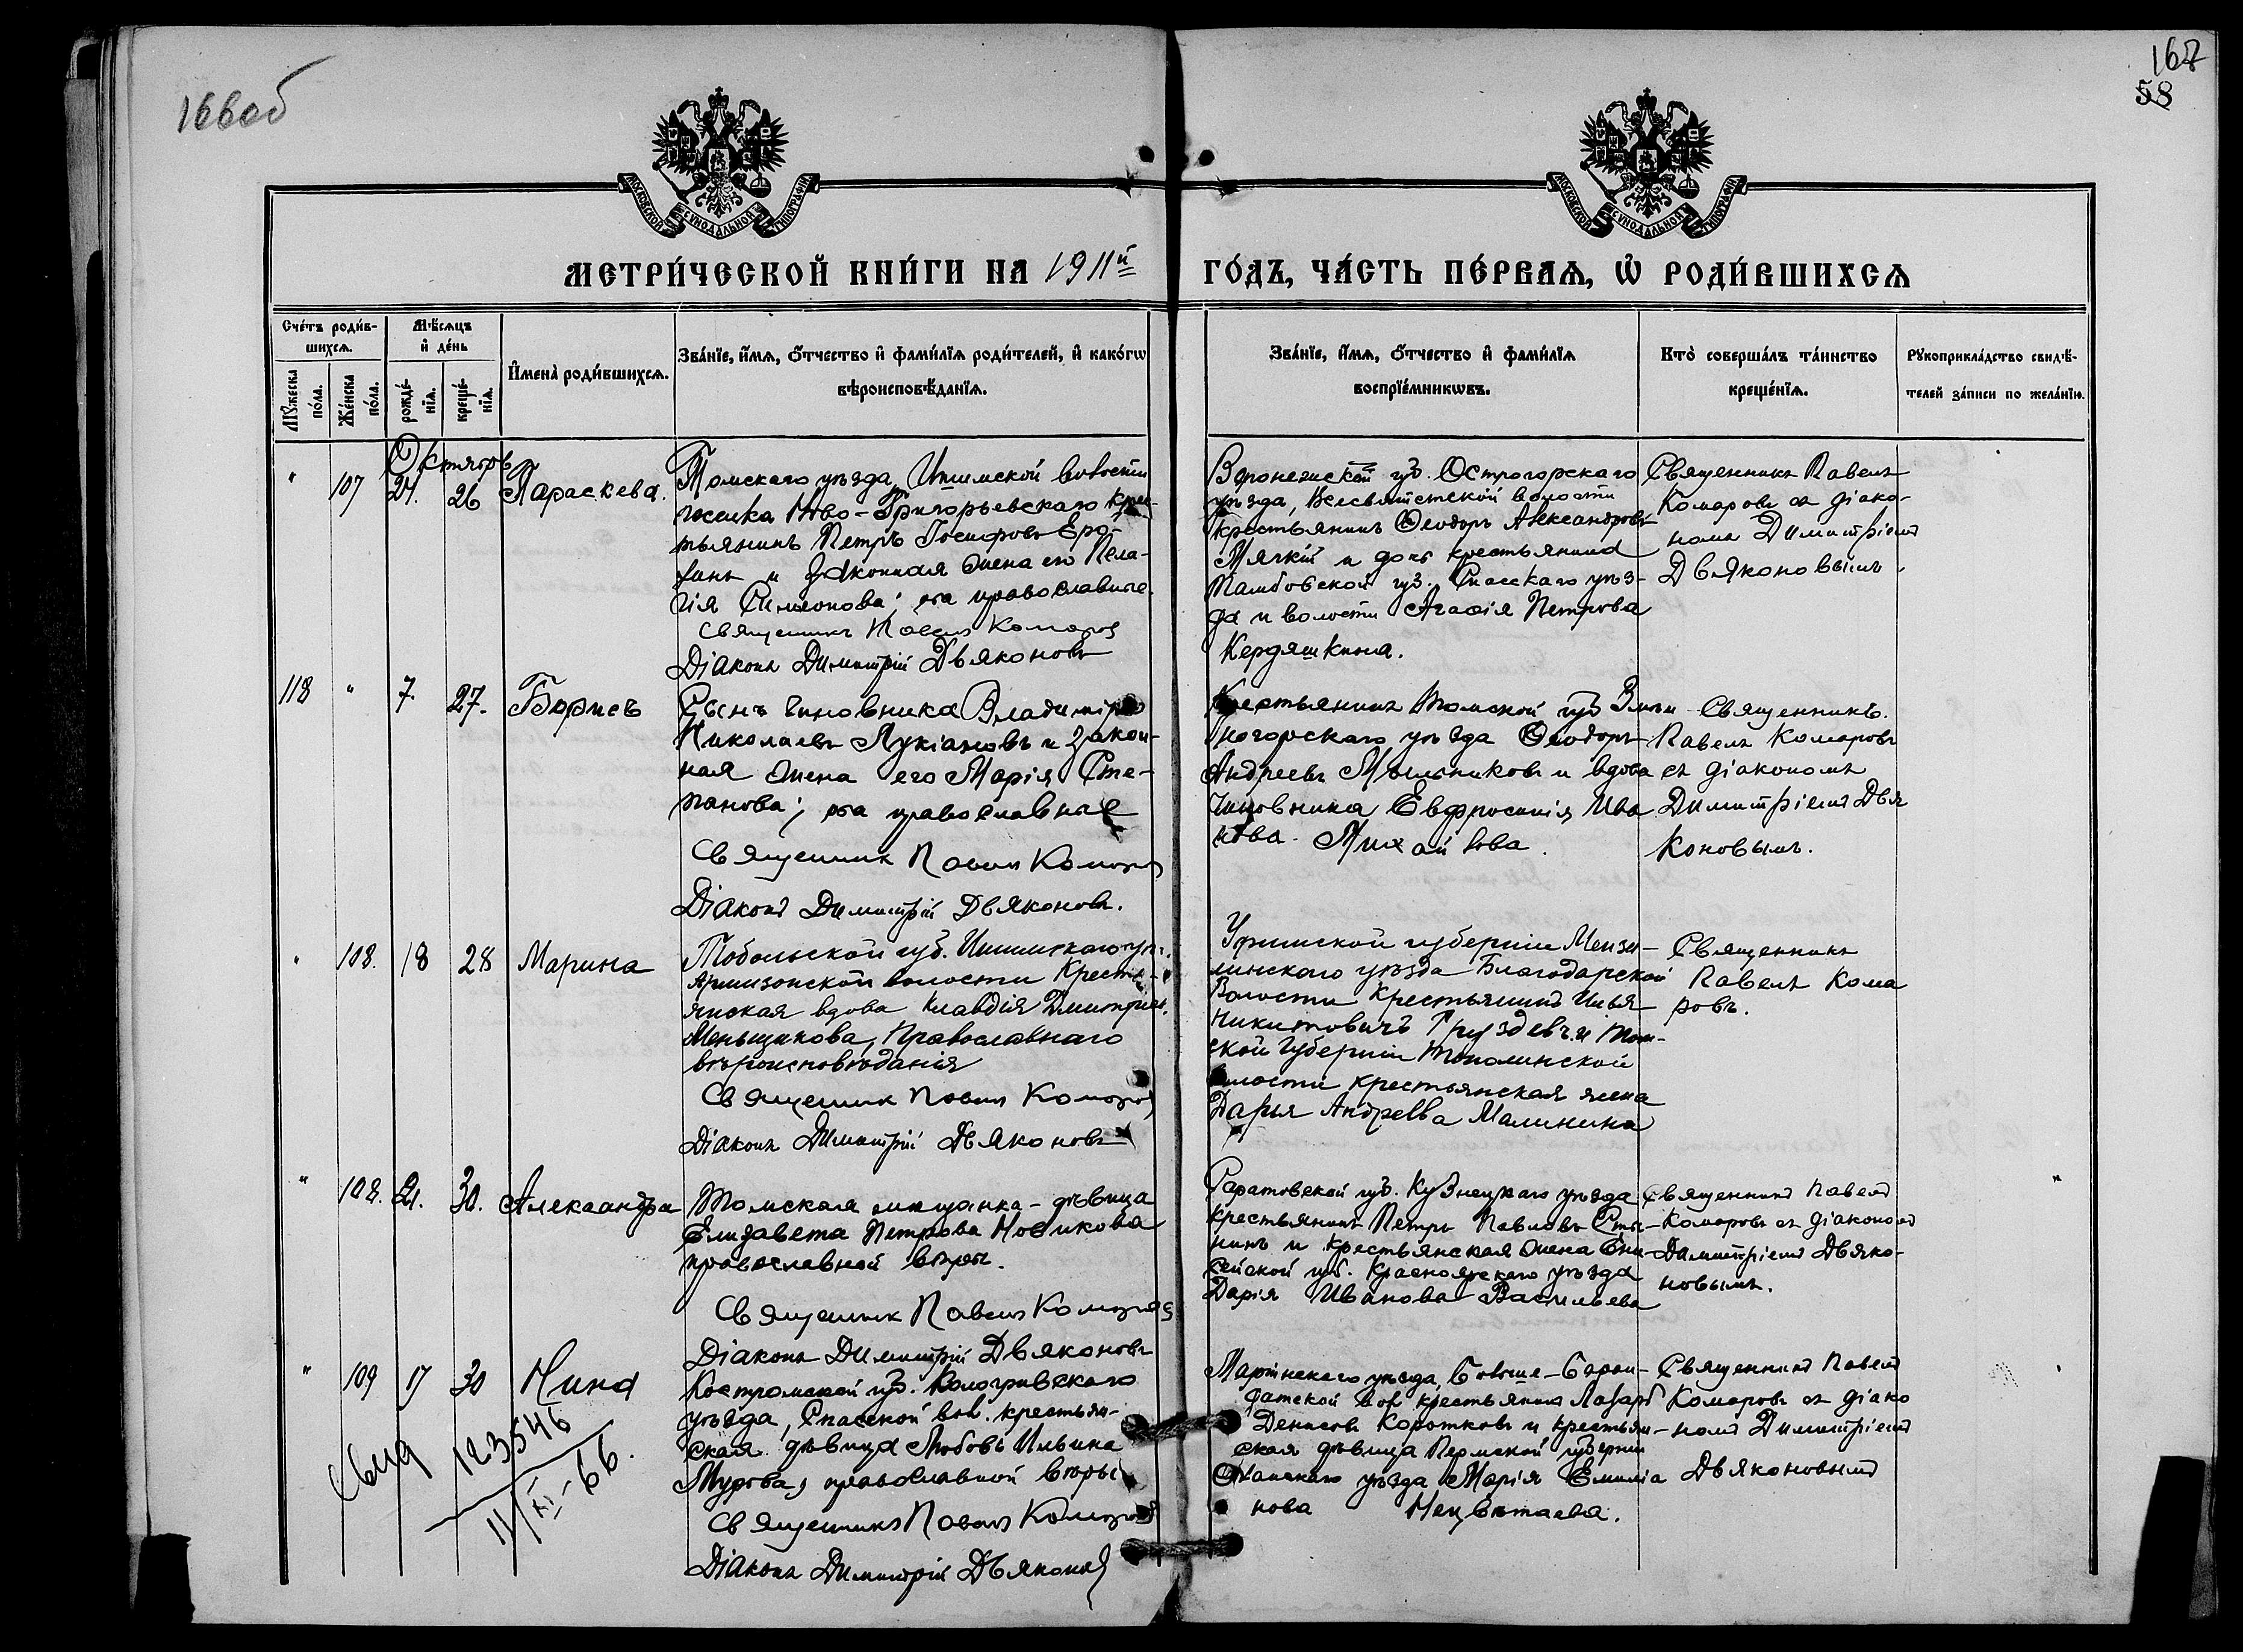 166об
167
58
МОСКОВСКОЙ СУНОДАЛЬНОЙ ТИПОГРАФІИ
МОСКОВСКОЙ СУНОДАЛЬНОЙ ТИПОГРАФІИ
МЕТРИ́ЧЕСКОЙ КНИ́ГИ НА 1911й
ГО́ДЪ, ЧА́СТЬ ПЕ́РВАѦ, Ѡ҆ РОДИ́ВШИХСѦ
Сче́тъ роди́в-
шихсѧ.
Мѣ́сѧцъ
и҆ де́нь
И҆мена̀ роди́вшихсѧ.
Зва́нїе, и҆́мѧ, ѻ҆́тчество и҆ фами́лїѧ роди́телей, и҆ како́гѡ
вѣроисповѣ́данїѧ.
Мꙋ́жеска
по́ла.
Же́нска
по́ла.
рожде́-
нїѧ.
креще́-
нїѧ.
Зва́нїе, и҆́мѧ, ѻ҆́тчество и҆ фами́лїѧ
воспрїе́мникѡвъ.
Кто̀ соверша́лъ та́инство
креще́нїѧ.
Рꙋкоприкла́дство свидѣ́-
телей за́писи по жела́нїю.
Октябрь
" 107 24. 26 Параскева.
Томскаго уѣзда, Ишимской волости
поселка Ново-Григорьевскаго крес-
тьянинъ Петръ Іосифовъ Еро-
and законная жена его Пела-
гія Симеонова; оба православные.
Священникъ Павелъ Комаров
Діаконъ Димитрій Дьяконовъ
Воронежской губ. Острогорскаго
уѣзда, Всесвятской волости
крестьянинъ Ѳеодоръ Александровъ
Мягкій и дочь крестьянина
Тамбовской губ. Спасскаго уѣз-
да и волости Агаѳія Петрова
Кердяшкина.
Священникъ Павелъ
Комаровъ съ діако-
номъ Димитріемъ
Дьяконовымъ.
118 " 7. 27. Борисъ
Сынъ чиновника Владиміръ
Николаевъ Лукіановъ и закон-
ная жена его Марія Сте-
панова; оба православные
Священник Павел Комаров
Діаконъ Димитрій Дьяконовъ.
Крестьянинъ Томской губ Змѣи-
ногорскаго уѣзда Ѳеодоръ
Андреевъ Мыльниковъ и вдова
чиновника Евфросинія Ива
нова Михайлова.
Священникъ
Павелъ Комаровъ
съ діакономъ
Димитріемъ Дья
коновымъ.
" 108. 18 28 Марина
Тобольской губ. Ишимскаго уѣз.
Армизонской волости Кресть-
янская вдова Клавдія Дмитріев.
Меньщикова, Православнаго
вѣроисповѣданія
Священник Павел Комаров
Діаконъ Димитрій Дьяконовъ
Уфимской губерніи Мензе-
линскаго уѣзда Благодарской
Волости Крестьянинъ Илья
Никитовичъ Груздевъ и Том-
ской Губерніи
волости крестьянская жена
Дарья Андреева Малинина
Священникъ
Павелъ Кома
ровъ.
" 108. 21. 30. Александра
Томская мещанка-дѣвица
Елизавета Петрова Новикова
православной вѣры.
Священник Павел Комаров
Діаконъ Димитрій Дьяконовъ
Саратовской губ. Кузнецкаго уѣзда
крестьянинъ Петръ Павловъ
и крестьянская жена Ени-
сейской губ. Красноярскаго уѣзда
Дарія Иванова Васильева
Священникъ Павелъ
Комаровъ съ діакономъ
Димитріемъ Дьяко-
новымъ.
" 109 17 30 Нина
Костромской губ. Кологривскаго
уѣзда, Спасской вол. крестьян-
ская дѣвица Любовь Ильина
Мурова, православной вѣры
Священникъ Павелъ Комаров
Діаконъ Димитрій Дьяконов
Маріинскаго уѣзда, Больше-Баран-
датской вол крестьянинъ Лазарь
Денисовъ Коротковъ и крестьян-
ская дѣвица Пермской губерніи
Оханскаго уѣзда Марія Емилiа
нова Нецвѣтаева.
Священникъ Павелъ
Комаровъ съ діако
номъ Димитріемъ
Дьяконовымъ
Свид 123546
11/XI-66.